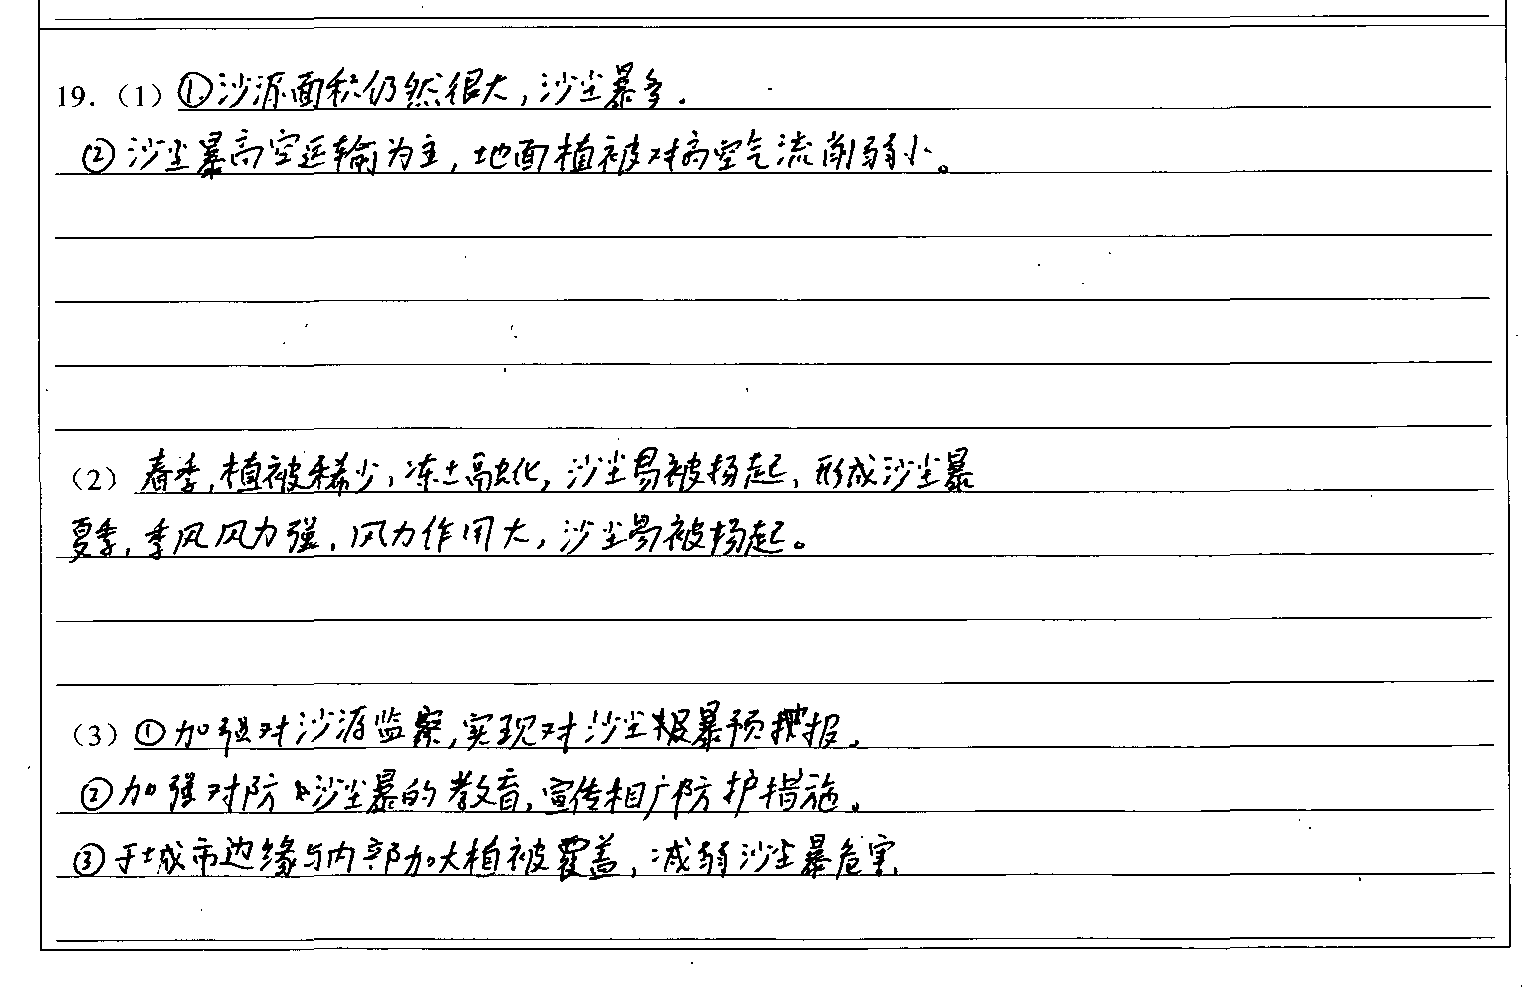 19.（1）①沙源面积仍然很大，沙尘暴多.
②沙尘暴高空运输为主，地面植被对高空气流削弱小。
（2）春季，植被稀少，冻土融化，沙尘易被扬起，形成沙尘暴
夏季，季风风力强，风力作用大，沙尘易被扬起。
（3）①加强对沙源监察，实现对沙尘暴预报。
②加强对防沙尘暴的教育，宣传相应防护措施。
③于城市边缘与内部加大植被覆盖，减弱沙尘暴危害.